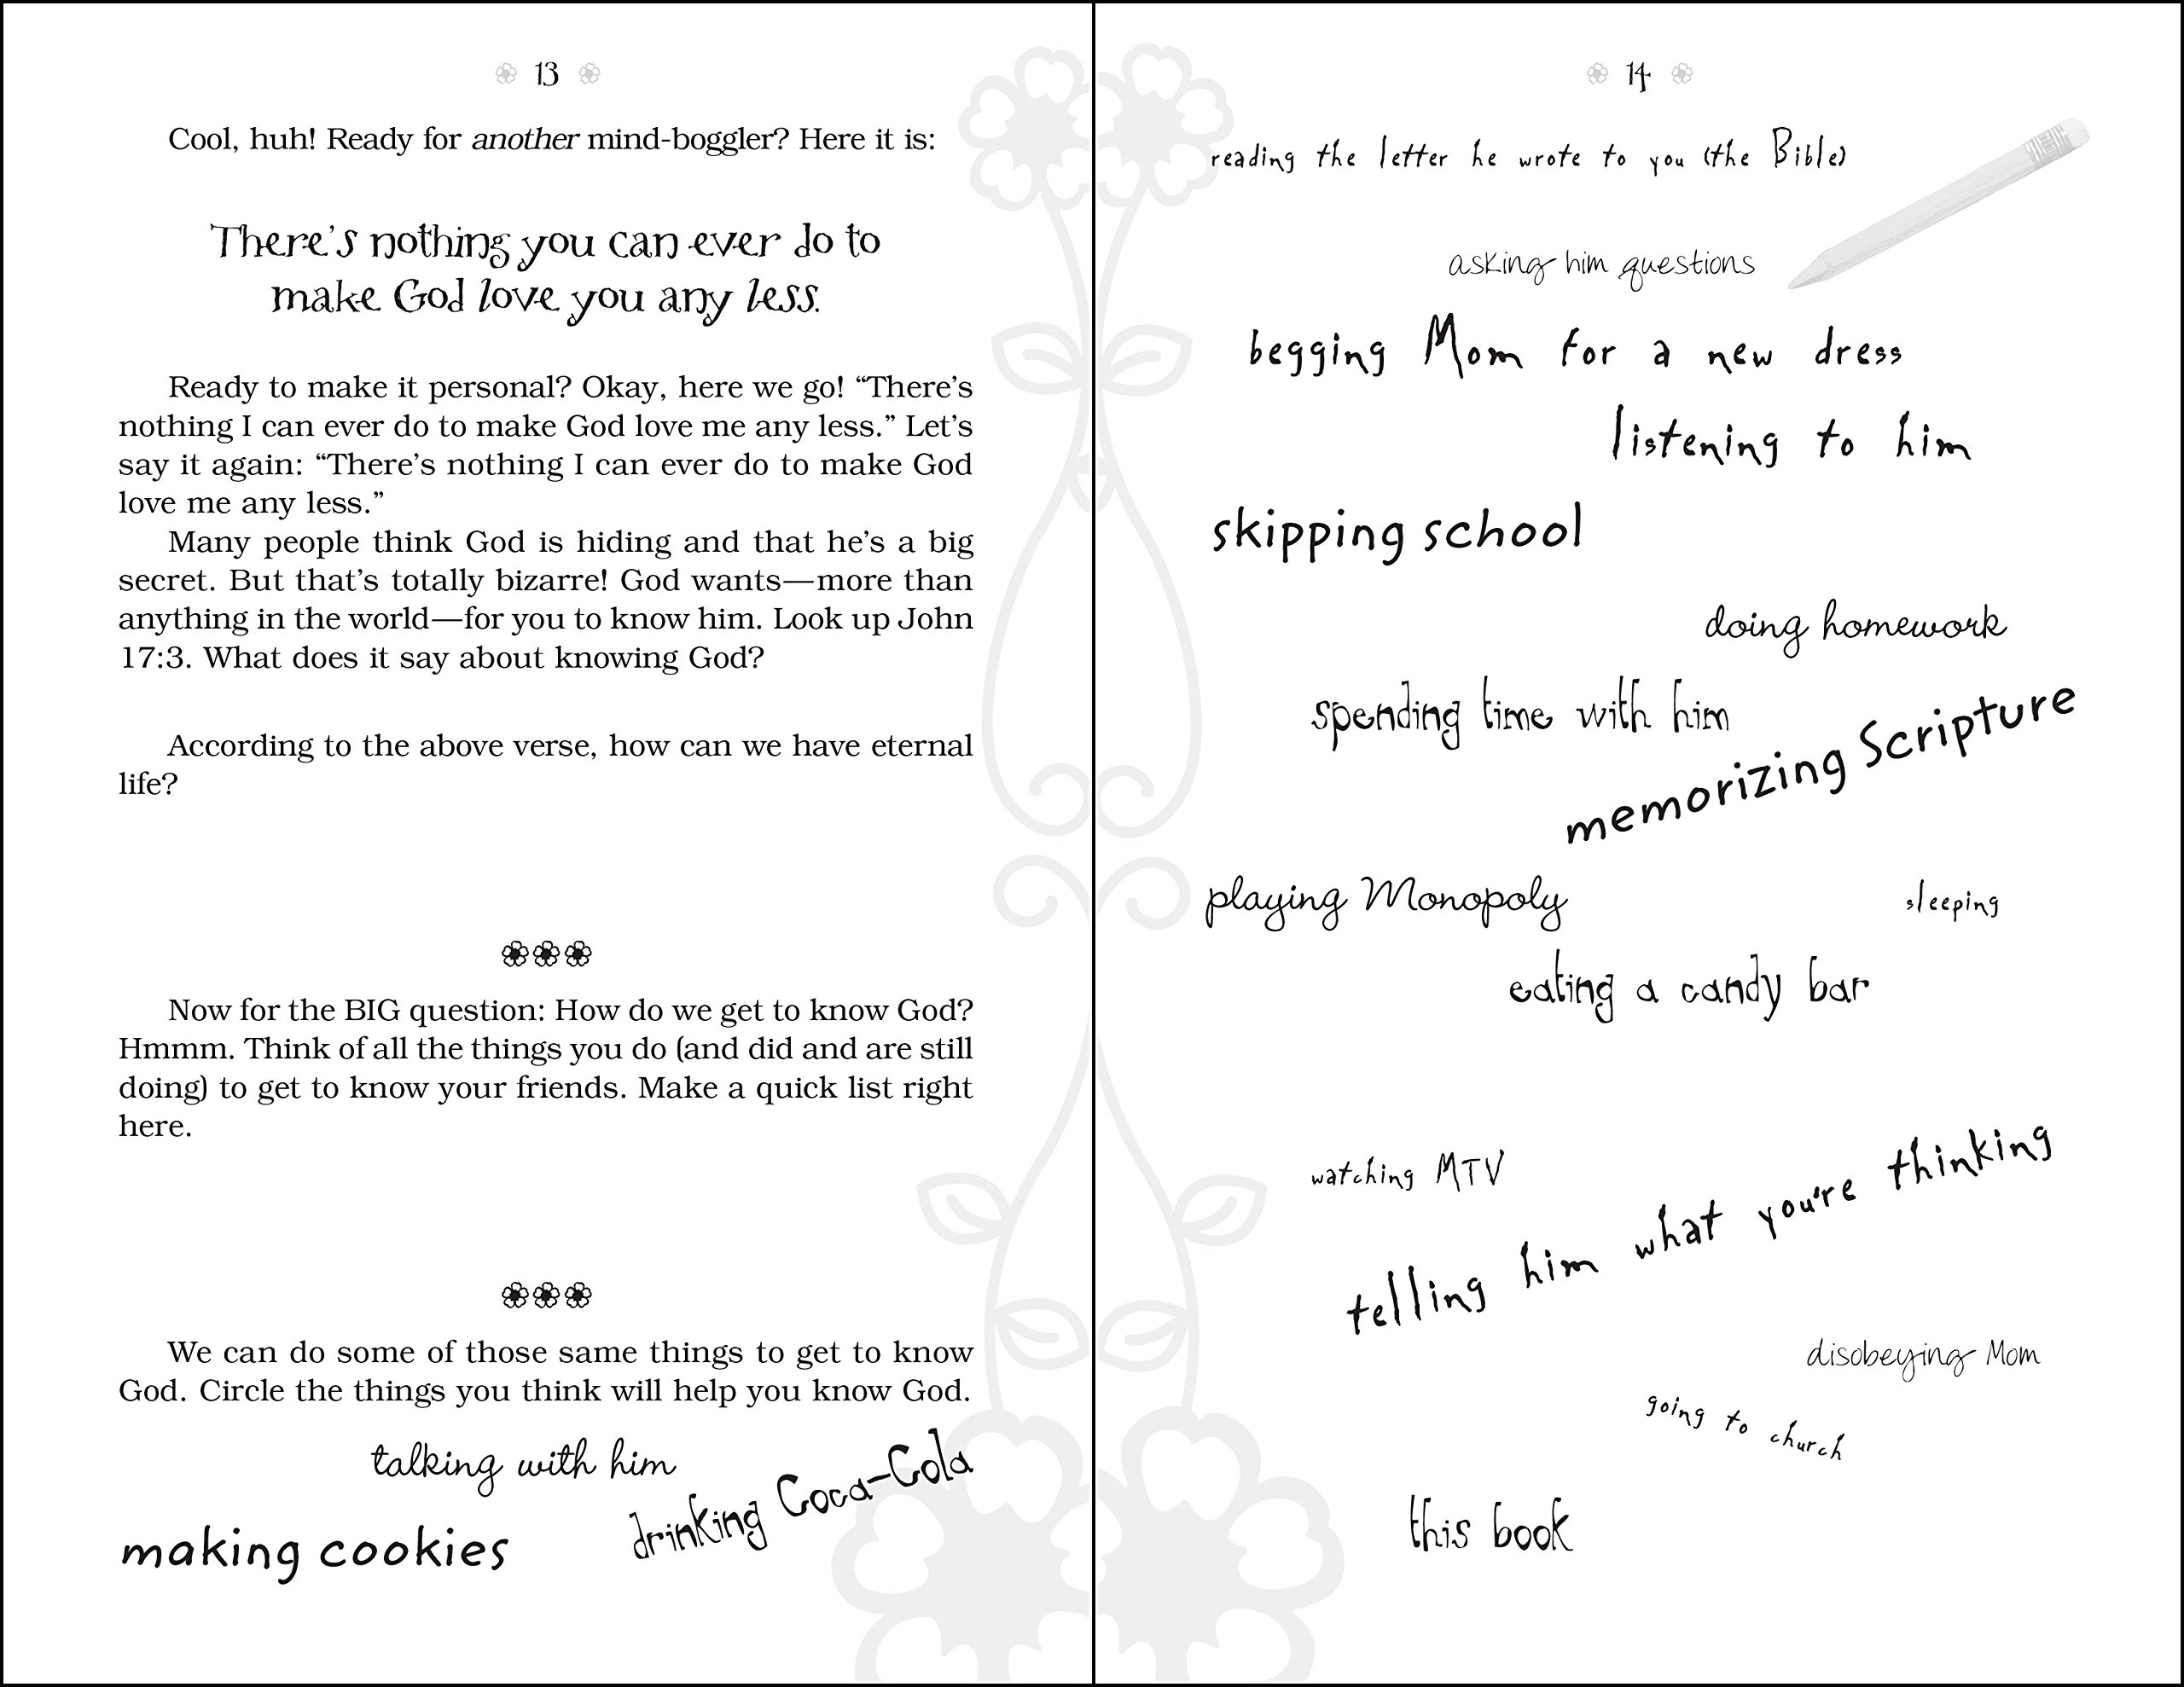 13
Cool, huh! Ready for another mind-boggler? Here it is:
There's nothing you can ever do to
make God love you any less.
Ready to make it personal? Okay, here we go! “There’s
nothing I can ever do to make God love me any less.” Let’s
say it again: “There’s nothing I can ever do to make God
love me any less.”
Many people think God is hiding and that he’s a big
secret. But that’s totally bizarre! God wants—more than
anything in the world—for you to know him. Look up John
17:3. What does it say about knowing God?
According to the above verse, how can we have eternal
life?
Now for the BIG question: How do we get to know God?
Hmmm. Think of all the things you do (and did and are still
doing) to get to know your friends. Make a quick list right
here.
We can do some of those same things to get to know
God. Circle the things you think will help you know God.
talking with him
drinking Coca-Cola
making cookies
14
reading the letter he wrote to you (the Bible)
asking him questions
begging Mom for a new dress
listening to him
skipping school
doing homework
spending time with him
memorizing Scripture
playing Monopoly
sleeping
eating a candy bar
watching MTV
telling him what you're thinking
disobeying Mom
going to church
this book